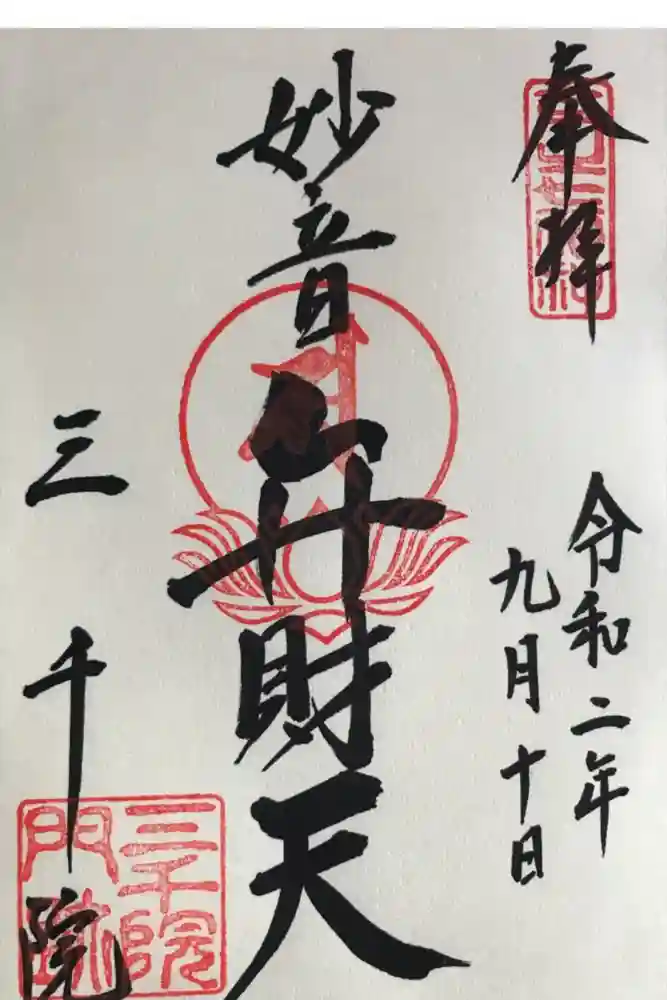 奉拝
令和二年
九月十日
妙音弁財天
三千院
三千院
門跡